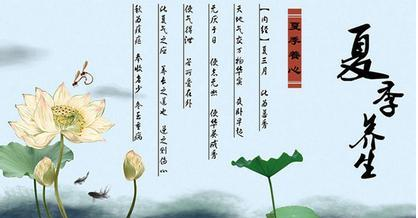 夏季养生
夏季養心
【内经】夏三月 此为蕃秀
天地气交 万物华实 夜卧早起
无厌于日 使志无怒 使华英成秀
使气得泄 若所爱在外
此夏气之应 养长之道也 逆之则伤心
秋为痎疟 奉收者少 冬至重病